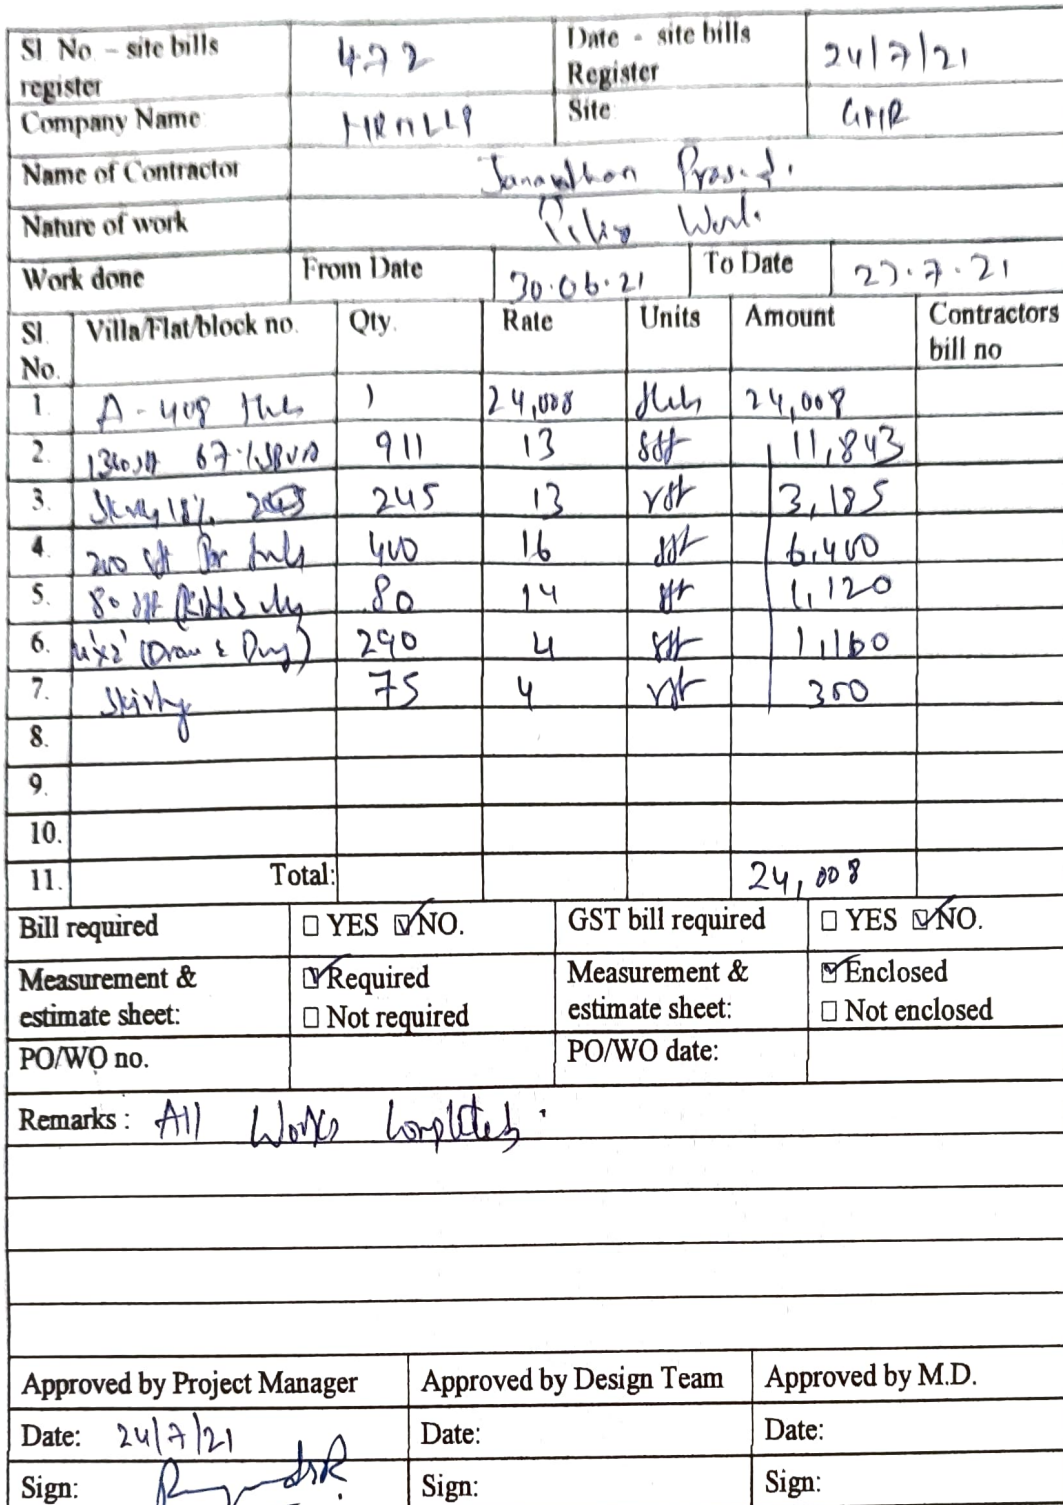 Sl No – site bills register 472 Date - site bills Register 24/7/21
Company Name Site GMR
Name of Contractor
Nature of work Work
Work done From Date 30.06.21 To Date 23.7.21
Sl. No. Villa/Flat/block no. Qty. Rate Units Amount Contractors bill no
1. A-408 1 24,008 24,008
2. 67% 911 13 sft 11,843
3. 18% 245 13 rft 3,185
4. 200 sft 400 16 sft 6,400
5. 80 sft 80 14 sft 1,120
6. 4'x2' 290 4 sft 1,160
7. Skirting 75 4 rft 300
8.
9.
10.
11. Total: 24,008
Bill required □ YES ☑ NO. GST bill required □ YES ☑ NO.
Measurement & estimate sheet: ☑ Required □ Not required Measurement & estimate sheet: ☑ Enclosed □ Not enclosed
PO/WO no. PO/WO date:
Remarks : All Works Completed.
Approved by Project Manager Approved by Design Team Approved by M.D.
Date: 24/7/21 Date: Date:
Sign: Sign: Sign: